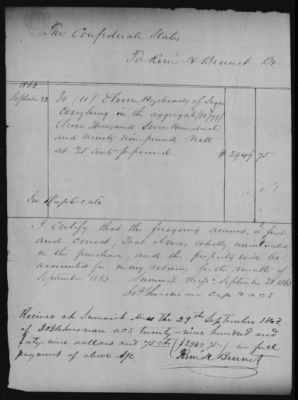 The Confederate States
To Rene A Brunet Dr
1863
September 29
To (11) Eleven Hogsheads of Sugar
Weighing in the aggregate (11,799)
Eleven Thousand Seven Hundred
and Ninety nine pounds Nett
at 25 cents per pound $ 2949 75
In Duplicate
I certify that the foregoing account is just
and correct, that it was wholly
in the purchase, and the property will be
accounted for in my return for the month of
September 1863
Summit Miss September 29 1863
Capt & ACS
Received at Summit Miss the 29th September 1863
of ACS twenty-nine hundred and
forty nine dollars and 75 cts (2949.75) in full
payment of above a/c
Rene A Brunet